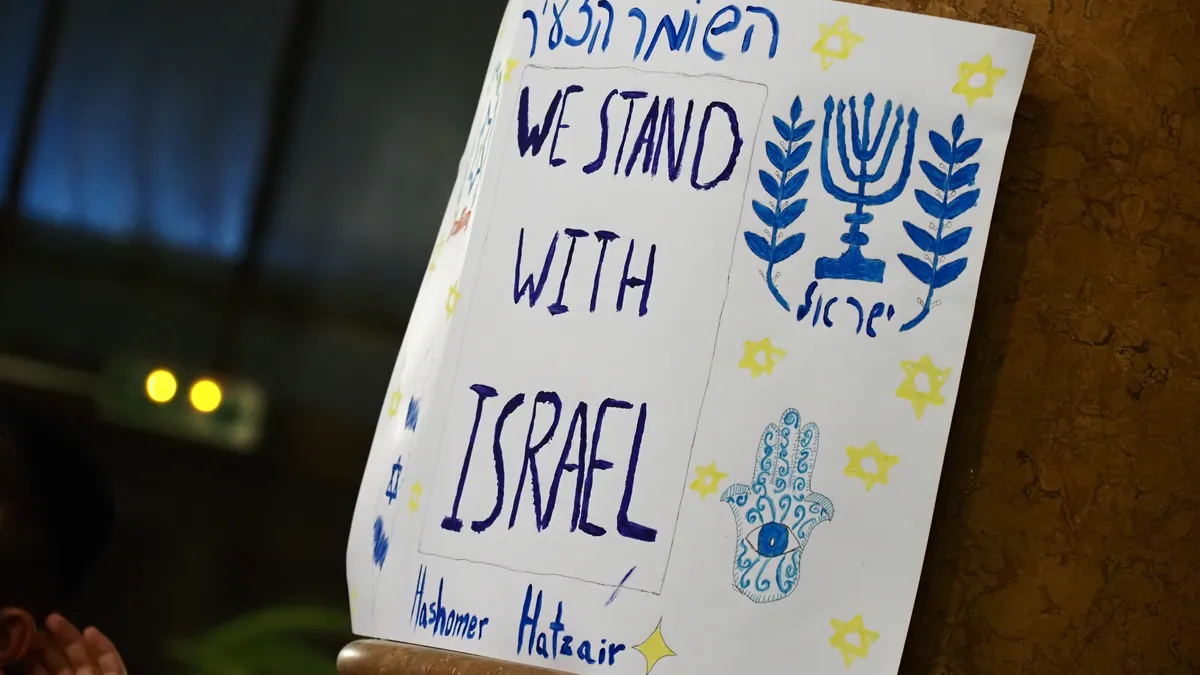 השומר הצעיר
WE STAND
WITH
ISRAEL
ישראל
Hashomer Hatzair